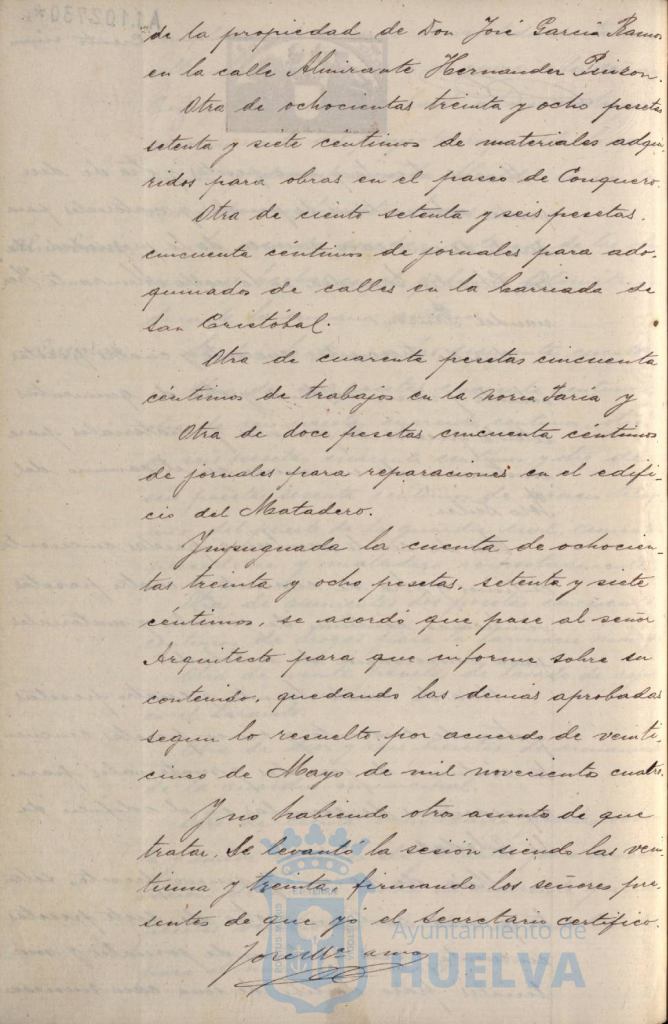 de la propiedad de Don José García Ramos
en la calle Almirante Hernandez Pinzon.
Otra de ochocientas treinta y ocho pesetas
setenta y siete céntimos de materiales adqui-
ridos para obras en el paseo de Conquero.
Otra de ciento setenta y seis pesetas,
cincuenta céntimos de jornales para ado-
quinados de calles en la barriada de
San Cristóbal.
Otra de cuarenta pesetas cincuenta
céntimos de trabajos en la noria Taria y
Otra de doce pesetas cincuenta céntimos
de jornales para reparaciones en el edifi-
cio del Matadero.
Impugnada la cuenta de ochocien-
tas treinta y ocho pesetas, setenta y siete
céntimos, se acordó que pase al señor
Arquitecto para que informe sobre su
contenido, quedando las demas aprobadas
segun lo resuelto por acuerdo de veinti-
cinco de Mayo de mil novecientos cuatro.
Y no habiendo otro asunto de que
tratar. Se levantó la sesión siendo las vein-
tiuna y treinta, firmando los señores pre-
sentes de que yo el Secretario certifico.
José Mª
Ayuntamiento de
HUELVA